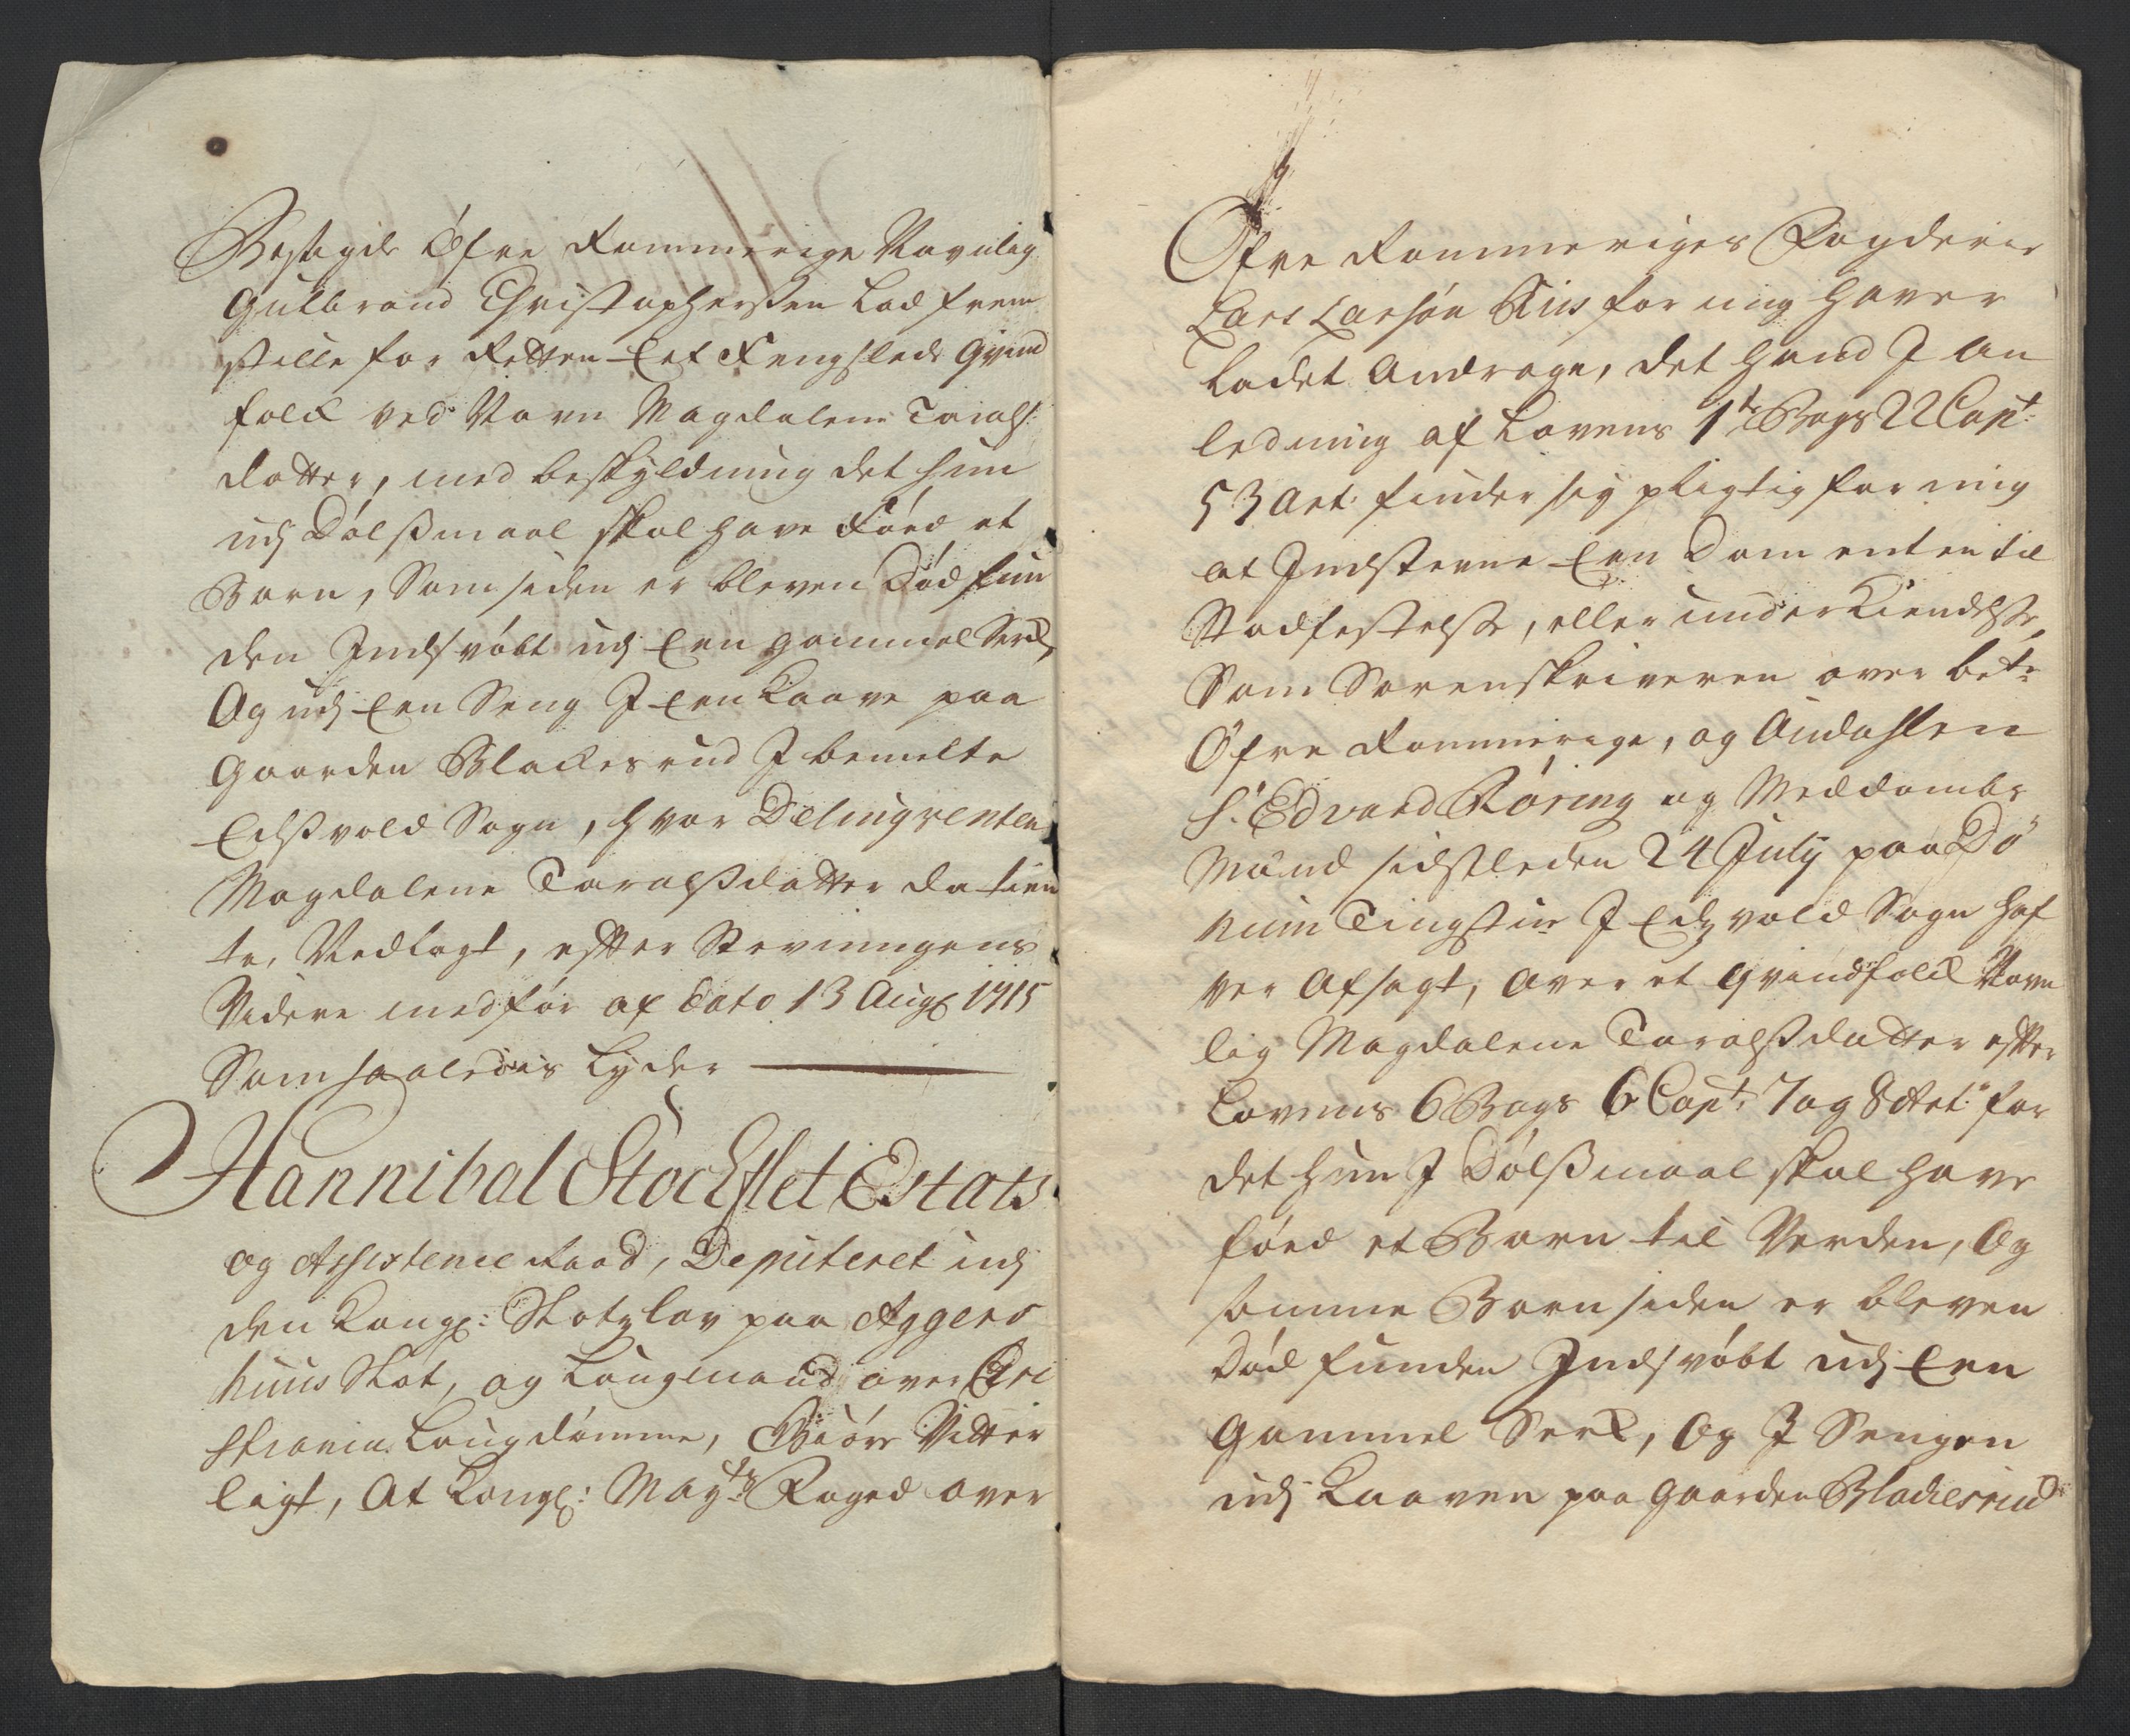 Øfre Rommerige Navnlig
Gulbrand Christophersen Lod frem
stille for Retten Eet Fengslede Qvind
folck ved Navn Magdalene Tarals:
datter, med beskyldning det hun
udj Dølsmaal skal have Føed et
Barn, Som siden er bleven Død fun
den Indsvøbt udj Een gammel Serck,
Og udj Een Seng J Een Laave paa
Gaarden Blackesrud J bemelte
Eidsvold Sogn, hvor Delinqventen
Magdalene Taralsdatter da tien
te, Vedlagt, efter Stevningens
Videre medfør af Dato 13 Aug: 1715
Som saaledes Lyder
Hannibal Stochflet Estats
og Assistence Raad, Deputeret udj
den Kongl: Slotzlov paa Aggers
huus Slot, og Laugmand over Chri
stiania Laugdømme, Giør Vitter
ligt, At Kongl: Mayts Foged over
Øfre Rommeriges Fogderie
Lars Larsøn Riis for mig haver
Ladet Andrage, det hand J an
ledning af Lovens 1te Bogs 22 Capt:
53 Art: finder sig pligtig for mig
at Indstevne Een Dom enten til
Stadfestelse, eller underkiendelse,
Som Sorenskriveren over bete
Øfre Rommerige, og Audahlen
Sr. Edvard Røring og Meddombs
Mænd sidstleden 24 July paa Dø
huum Tingstue J Eidzvold Sogn haf
ver Afsagt, over et Qvindfolck Navn
lig Magdalene Taralsdatter efter
Lovens 6 Bogs 6 Capt: 7 og 8 Art: for
det hun J Dølsmaal skal have
føed et Barn til Verden, Og
samme Barn siden er bleven
død funden Indsvøbt udj Een
Gammel Serck, Og J Sengen
udj Laaven paa Gaarden Blackesrud